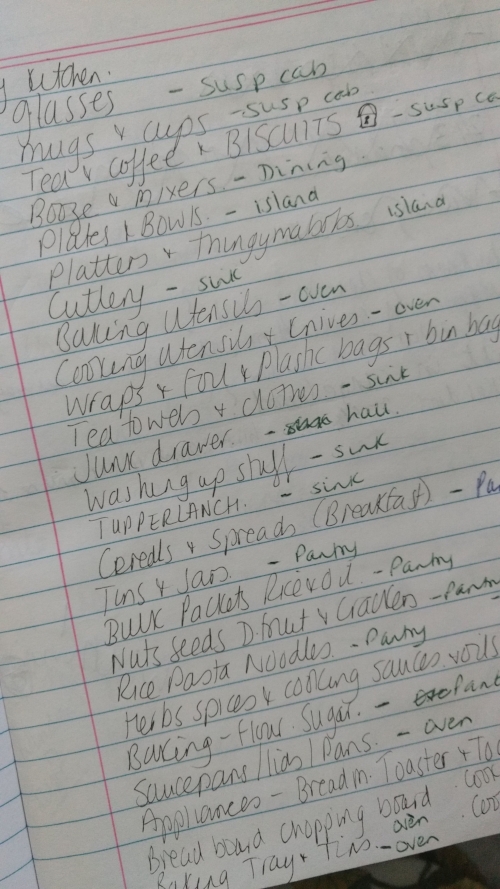 y Kitchen.
glasses - susp cab
mugs & cups - susp cab
Tea & coffee & BISCUITS - susp ca
Booze & mixers - Dining
Plates & Bowls. - island
Platters & thingymabobs island
Cutlery - sink
Baking Utensils - oven
Cooking Utensils & Knives - oven
Wraps & Foil & plastic bags & bin bag
Tea towels & clothes - sink
Junk drawer. - hall.
Washing up stuff - sink
TUPPERLANCH. - sink
Cereals & Spreads (Breakfast) - Pa
Tins & Jars. - Pantry
Bulk Packets Rice & oil. - Pantry
Nuts Seeds D.fruit & Crackers - Pantry
Rice Pasta Noodles. - Pantry
Herbs spices & cooking sauces & oils
Baking - Flour. Sugar. - Pant
Saucepans/lids/Pans. - oven
Appliances - Breadm. Toaster & Toa
Bread board chopping board. Coo
Baking Tray & Tins. oven - oven Coo